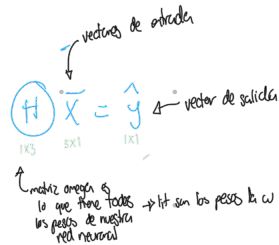 vectores de entrada
H x̄ = ŷ
vector de salida
1x3 3x1 1x1
matriz omega es
lo que tiene todos
los pesos de nuestra
red neuronal
→ lit son los pesos la w